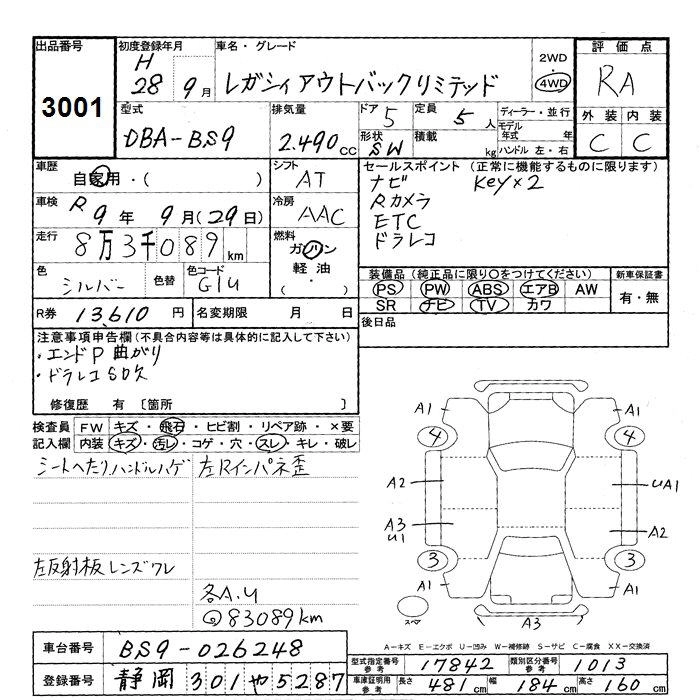 出品番号 初度登録年月 車名・グレード 2WD 評価点
3001 H28 9月 レガシィアウトバックリミテッド 4WD RA
型式 排気量 ドア 定員 ディーラー・並行 外装 内装
DBA-BS9 2.490cc 5 5人 モデル年式 年 C C
形状 SW 積載 kg ハンドル 左・右
車歴 自家用・( ) シフト AT セールスポイント (正常に機能するものに限ります)
ナビ Key×2
車検 R9年 9月(29日) 冷房 AAC Rカメラ
ETC
走行 8万3千089km 燃料 ガソリン ドラレコ
軽油
( ・ )
色 シルバー 色替 色コード G1U 装備品 (純正品に限り○をつけてください) 新車保証書
PS PW ABS エアB AW 有・無
R券 13,610円 名変期限 月 日 SR ナビ TV カワ
注意事項申告欄 (不具合内容等は具体的に記入して下さい) 後日品
・エンドP曲がり
・ドラレコSD欠
修復歴 有 〔箇所 〕
検査員 FW キズ・飛石・ヒビ割・リペア跡・×要
記入欄 内装 キズ・汚レ・コゲ・穴・スレ・キレ・破レ
シートへたり、ハンドルハゲ 左Rインパネ歪
左反射板レンズワレ
各A.U
83089km
A1 A1
4 4
A2 UA1
A3 U1 A2
3 3
A1 A1
スペア A3
A-キズ E-エクボ U-凹み W-補修跡 S-サビ C-腐食 XX-交換済
車台番号 BS9-026248 型式指定番号 参考 17842 類別区分番号 参考 1013
登録番号 静岡 301 や 5287 車庫証明用 参考 長さ 481cm 幅 184cm 高さ 160cm